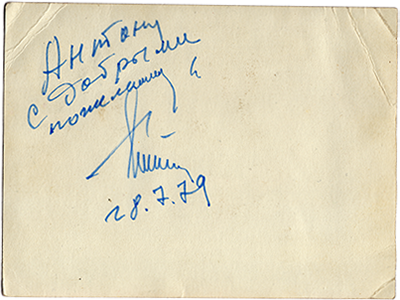 Антону
с добрыми
пожеланиями
28.7.79